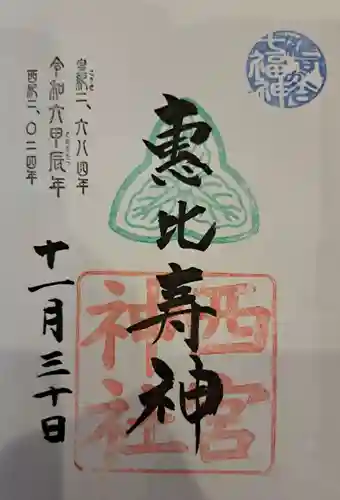 七福神
恵比寿神
西宮
神社
皇紀二、六八四年
令和六甲辰年
西紀二、〇二四年
十一月三十日